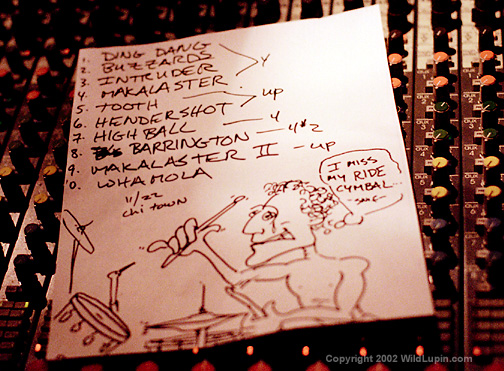 1. DING DANG
2. BUZZARDS
3. INTRUDER
4. MAKALASTER
5. TOOTH
6. HENDERSHOT
7. HIGH BALL
8. BARRINGTON - 4#2
9. MAKALASTER II - UP
10. WHAMOLA
Y
UP
4
11/22
Chi TOWN
I MISS
MY RIDE
CYMBAL...
AUX
AUX
AUX
AUX
Copyright 2002 WildLupin.com